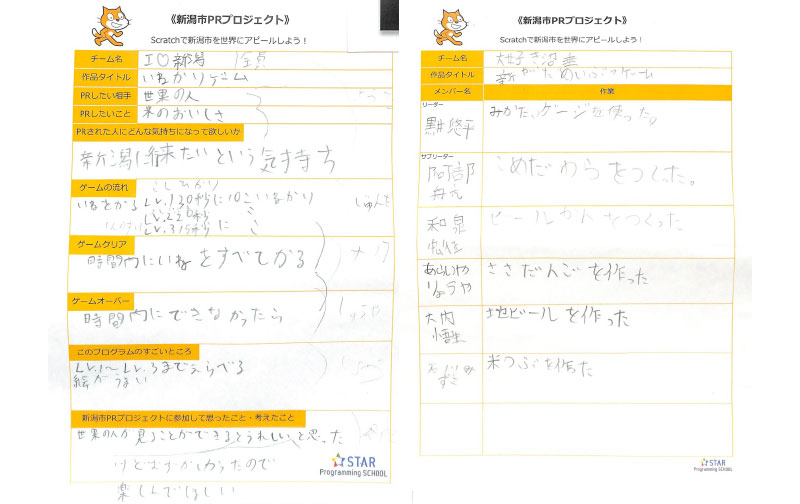 《新潟市PRプロジェクト》
Scratchで新潟市を世界にアピールしよう！
チーム名 I♡新潟
作品タイトル いねかりゲーム
PRしたい相手 世界の人
PRしたいこと 米のおいしさ
PRされた人にどんな気持ちになって欲しいか
新潟に来たいという気持ち
ゲームの流れ
こしひかり
いねをかる Lv.1 30秒に10こいねかり
ゲームクリア
時間内にいねをすべてかる
ゲームオーバー
時間内にできなかったら
このプログラムのすごいところ
Lv.1〜Lv.3までえらべる
絵がうまい
新潟市PRプロジェクトに参加して思ったこと・考えたこと
世界の人が見ることができるとうれしいと思った
楽しんでほしい
STAR
Programming SCHOOL
《新潟市PRプロジェクト》
Scratchで新潟市を世界にアピールしよう！
チーム名
作品タイトル 新がためいぶつゲーム
メンバー名 作業
リーダー
悠平 みかた、ゲージを使った。
サブリーダー
阿部 こめだわらをつくった。
和泉 ビールかんをつくった
ささだんごを作った
大内 地ビールを作った
米つぶを作った
STAR
Programming SCHOOL